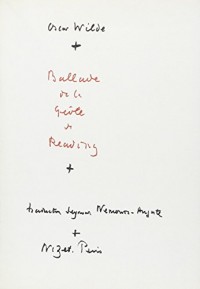 Oscar Wilde
+
Ballade
de la
Geôle
de
Reading
+
traduction Jacques Nemours-Auguste
+
Nizet. Paris